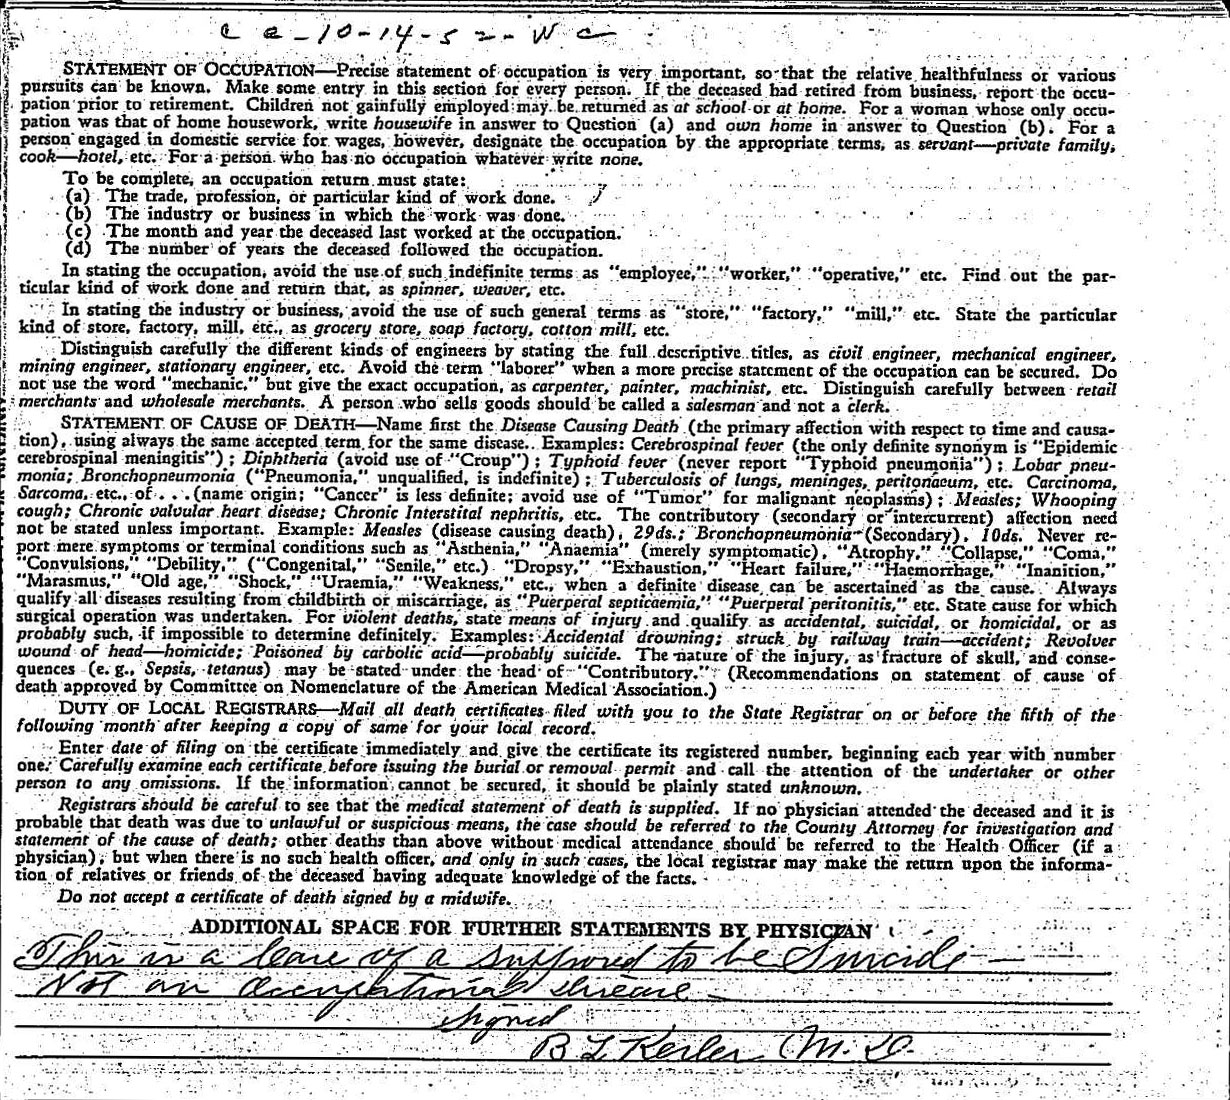 c c - 10 - 14 - 52 - W c
STATEMENT OF OCCUPATION—Precise statement of occupation is very important, so that the relative healthfulness or various
pursuits can be known. Make some entry in this section for every person. If the deceased had retired from business, report the occu-
pation prior to retirement. Children not gainfully employed may be returned as at school or at home. For a woman whose only occu-
pation was that of home housework, write housewife in answer to Question (a) and own home in answer to Question (b). For a
person engaged in domestic service for wages, however, designate the occupation by the appropriate terms, as servant—private family,
cook—hotel, etc. For a person who has no occupation whatever write none.
To be complete, an occupation return must state:
(a) The trade, profession, or particular kind of work done.
(b) The industry or business in which the work was done.
(c) The month and year the deceased last worked at the occupation.
(d) The number of years the deceased followed the occupation.
In stating the occupation, avoid the use of such indefinite terms as "employee," "worker," "operative," etc. Find out the par-
ticular kind of work done and return that, as spinner, weaver, etc.
In stating the industry or business, avoid the use of such general terms as "store," "factory," "mill," etc. State the particular
kind of store, factory, mill, etc., as grocery store, soap factory, cotton mill, etc.
Distinguish carefully the different kinds of engineers by stating the full descriptive titles, as civil engineer, mechanical engineer,
mining engineer, stationary engineer, etc. Avoid the term "laborer" when a more precise statement of the occupation can be secured. Do
not use the word "mechanic," but give the exact occupation, as carpenter, painter, machinist, etc. Distinguish carefully between retail
merchants and wholesale merchants. A person who sells goods should be called a salesman and not a clerk.
STATEMENT OF CAUSE OF DEATH—Name first the Disease Causing Death (the primary affection with respect to time and causa-
tion), using always the same accepted term for the same disease. Examples: Cerebrospinal fever (the only definite synonym is "Epidemic
cerebrospinal meningitis"); Diphtheria (avoid use of "Croup"); Typhoid fever (never report "Typhoid pneumonia"); Lobar pneu-
monia; Bronchopneumonia ("Pneumonia," unqualified, is indefinite); Tuberculosis of lungs, meninges, peritonaeum, etc. Carcinoma,
Sarcoma, etc., of . . . (name origin; "Cancer" is less definite; avoid use of "Tumor" for malignant neoplasms); Measles; Whooping
cough; Chronic valvular heart disease; Chronic Interstital nephritis, etc. The contributory (secondary or intercurrent) affection need
not be stated unless important. Example: Measles (disease causing death), 29ds.; Bronchopneumonia (Secondary), 10ds. Never re-
port mere symptoms or terminal conditions such as "Asthenia," "Anaemia" (merely symptomatic), "Atrophy," "Collapse," "Coma,"
"Convulsions," "Debility," ("Congenital," "Senile," etc.) "Dropsy," "Exhaustion," "Heart failure," "Haemorrhage," "Inanition,"
"Marasmus," "Old age," "Shock," "Uraemia," "Weakness," etc., when a definite disease can be ascertained as the cause. Always
qualify all diseases resulting from childbirth or miscarriage, as "Puerperal septicaemia," "Puerperal peritonitis," etc. State cause for which
surgical operation was undertaken. For violent deaths, state means of injury and qualify as accidental, suicidal, or homicidal, or as
probably such, if impossible to determine definitely. Examples: Accidental drowning; struck by railway train—accident; Revolver
wound of head—homicide; Poisoned by carbolic acid—probably suicide. The nature of the injury, as fracture of skull, and conse-
quences (e. g., Sepsis, tetanus) may be stated under the head of "Contributory." (Recommendations on statement of cause of
death approved by Committee on Nomenclature of the American Medical Association.)
DUTY OF LOCAL REGISTRARS—Mail all death certificates filed with you to the State Registrar on or before the fifth of the
following month after keeping a copy of same for your local record.
Enter date of filing on the certificate immediately and give the certificate its registered number, beginning each year with number
one. Carefully examine each certificate before issuing the burial or removal permit and call the attention of the undertaker or other
person to any omissions. If the information cannot be secured, it should be plainly stated unknown.
Registrars should be careful to see that the medical statement of death is supplied. If no physician attended the deceased and it is
probable that death was due to unlawful or suspicious means, the case should be referred to the County Attorney for investigation and
statement of the cause of death; other deaths than above without medical attendance should be referred to the Health Officer (if a
physician), but when there is no such health officer, and only in such cases, the local registrar may make the return upon the informa-
tion of relatives or friends of the deceased having adequate knowledge of the facts.
Do not accept a certificate of death signed by a midwife.
ADDITIONAL SPACE FOR FURTHER STATEMENTS BY PHYSICIAN
This is a Case of a supposed to be Suicide —
Not an Occupational disease —
Signed
B L Kesler M. D.